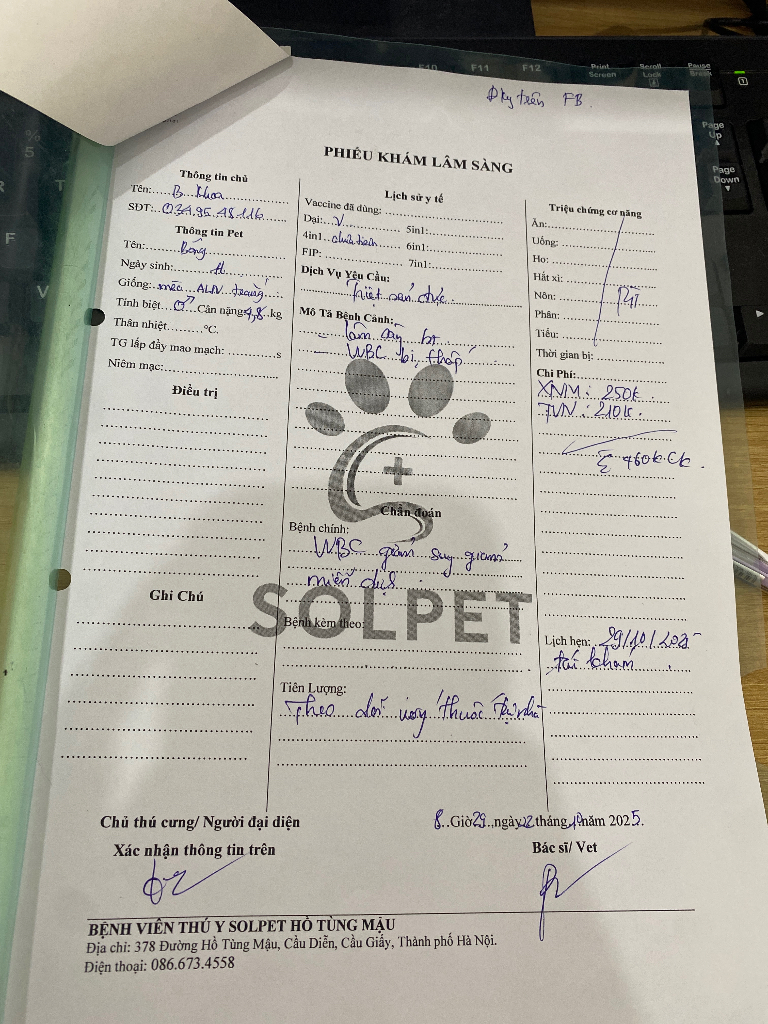 F10 F11 F12 Print Screen Scroll Lock Pause Break
Page Up
Page Down
Đky trên FB.
PHIẾU KHÁM LÂM SÀNG
Thông tin chủ
Tên: B. Khoa
SĐT: 034.95.48.116
Thông tin Pet
Tên: Bống
Ngày sinh:
Giống: mèo ALN trắng
Tính biệt ♂ Cân nặng 4,8 kg
Thân nhiệt °C.
TG lấp đầy mao mạch: s
Niêm mạc:
Điều trị
Ghi Chú
Lịch sử y tế
Vaccine đã dùng:
Dại: V 5in1:
4in1 chưa tiêm 6in1:
FIP: 7in1:
Dịch Vụ Yêu Cầu:
Triệt sản đực.
Mô Tả Bệnh Cảnh:
- Lâm sàng bt
- WBC bị thấp
Chẩn đoán
Bệnh chính:
WBC giảm suy giảm
miễn dịch
SOLPET
Bệnh kèm theo:
Tiên Lượng:
Theo dõi uống thuốc tại nhà
Triệu chứng cơ năng
Ăn:
Uống:
Ho:
Hắt xì:
Nôn: BT
Phân:
Tiểu:
Thời gian bị:
Chi Phí:
XNM: 250k
TVN: 210k.
Σ 460k.Ck.
Lịch hẹn: 29/10/2025
tái khám
Chủ thú cưng/ Người đại diện
Xác nhận thông tin trên
8 Giờ 29, ngày 22 tháng 10 năm 2025.
Bác sĩ/ Vet
BỆNH VIỆN THÚ Y SOLPET HỒ TÙNG MẬU
Địa chỉ: 378 Đường Hồ Tùng Mậu, Cầu Diễn, Cầu Giấy, Thành phố Hà Nội.
Điện thoại: 086.673.4558